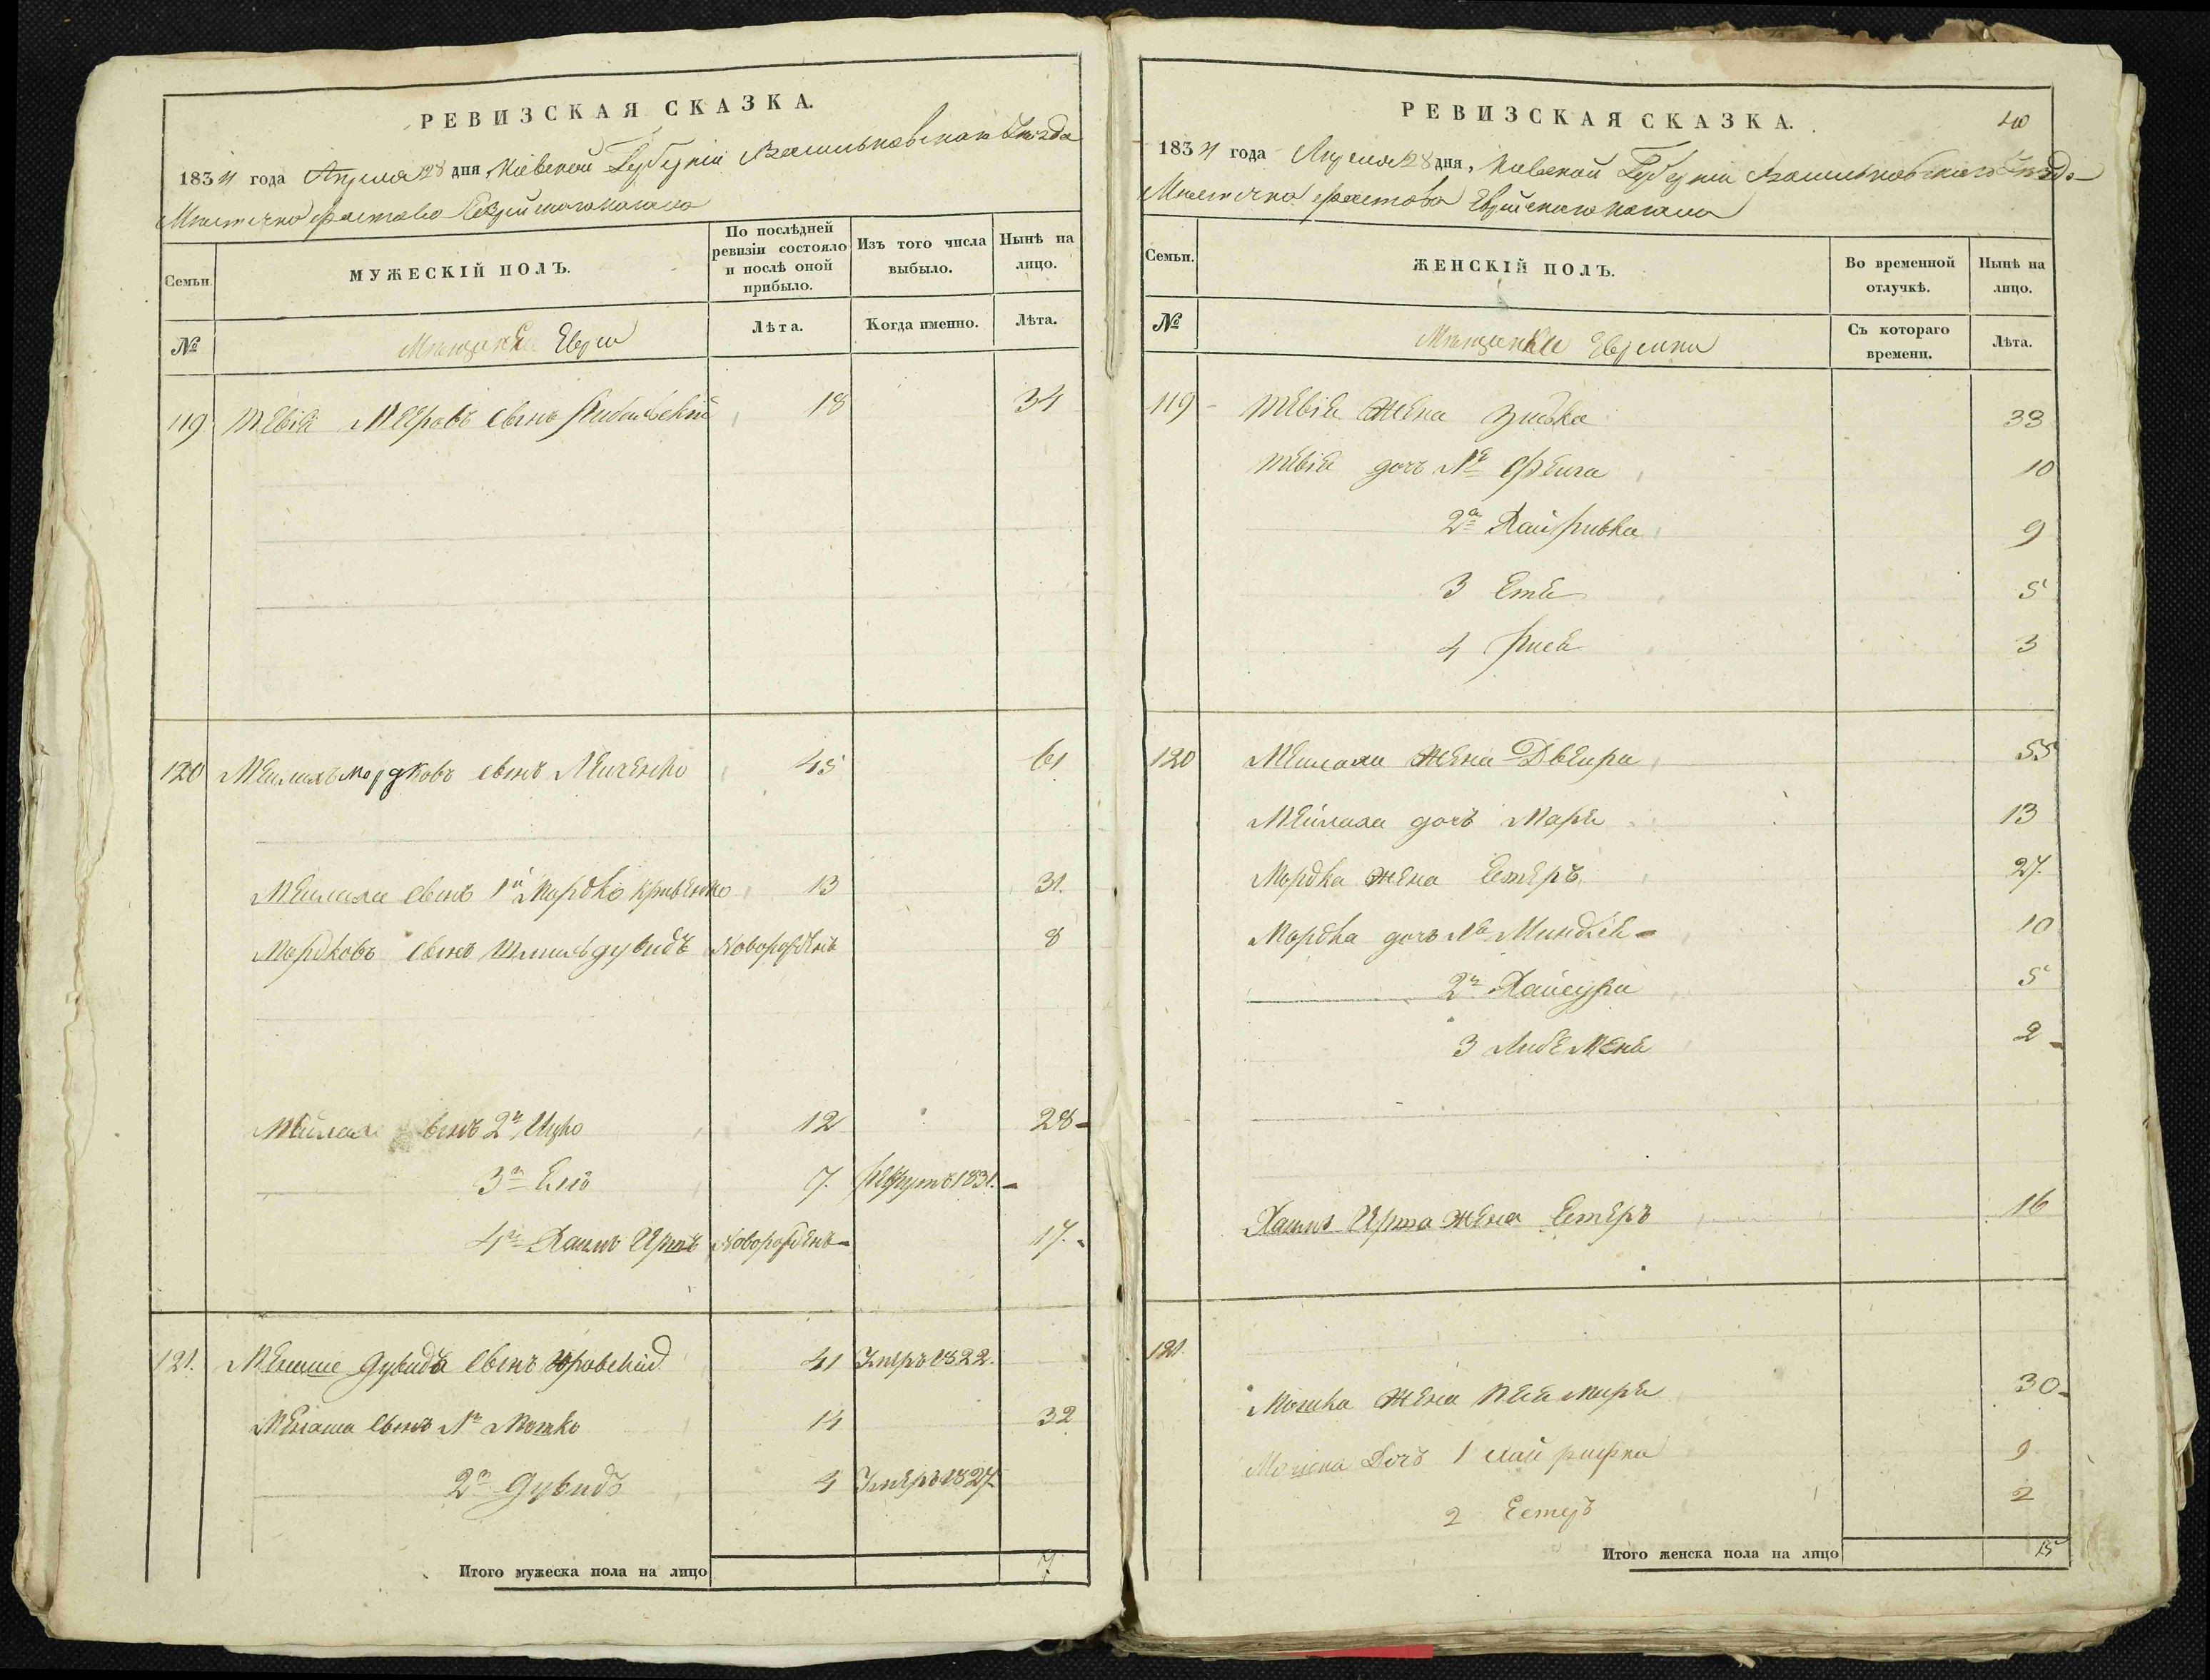 РЕВИЗСКАЯ СКАЗКА.
1834 года Апреля 28 дня, Кіевской Губерніи Васильковскаго Уезда
Мѣстечка Фастова Еврейскаго кагала
Семьи.
МУЖЕСКІЙ ПОЛЪ.
По послѣдней ревизіи состояло и послѣ оной прибыло.
Изъ того числа выбыло.
Нынѣ на лицо.
№
Мѣщане Евреи
Лѣта.
Когда именно.
Лѣта.
119 Тевіе Меировъ сынъ 18 34
120 Меилахъ Мордковъ сынъ 45 61
Меилаха сынъ 1й Мордко 13 31.
Мордковъ сынъ Шмиль Дувидъ Новорожденъ 8
Мейлаха сынъ 2й Ицко 12 28
3й Еліо 7. рекрутъ 1831.
4й Хаимъ Новорожденъ 17.
121. Менаше Дувидъ сынъ 41 Умеръ 1822.
Менаша сынъ 1й Мошко 14 32
2й Дувидъ 4 Умеръ 1827
Итого мужеска пола на лицо 7.
РЕВИЗСКАЯ СКАЗКА.
40
1834 года Апреля 28 дня, Кіевской Губерніи Васильковскаго Уезда
Мѣстечка Фастова Еврейскаго кагала
Семьи.
ЖЕНСКІЙ ПОЛЪ.
Во временной отлучкѣ.
Нынѣ на лицо.
№
Мѣщанки Еврейки
Съ котораго времени.
Лѣта.
119 Тевіе жена Зиська 33
Тевіе дочь 1я Фейга 10
2я Хайривка 9
3 Етя 5
4 Рися 3
120 Меилаха жена Двеира 55
Мейлаха дочь Маря 13
Мордка жена Естеръ 27.
Мордка дочь 1я Миндля 10
2я Хайсура 5
3 2
Хаимъ жена Естеръ 16
121.
Мошка жена 30
Мошка дочь 1 Хай рифка 9
2 Естеръ 2
Итого женска пола на лицо 15